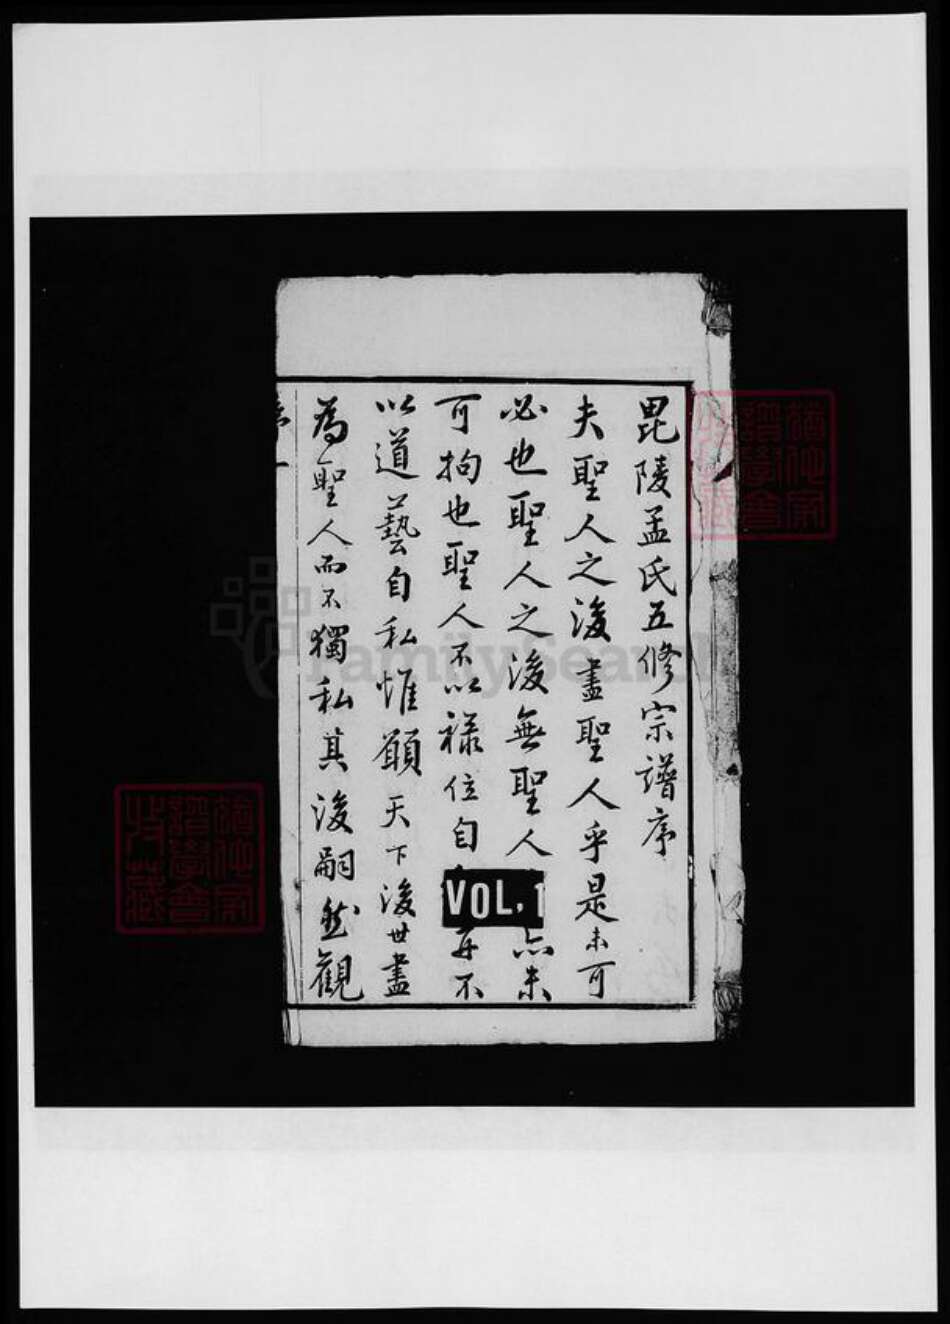 毘陵孟氏五修宗譜序
夫聖人之後盡聖人乎是未可
必也聖人之後無聖人亦未
可拘也聖人不以祿位自不
以道藝自私惟願天下後世盡
為聖人而不獨私其後嗣然觀
序 一
VOL. 1
FamilySearch